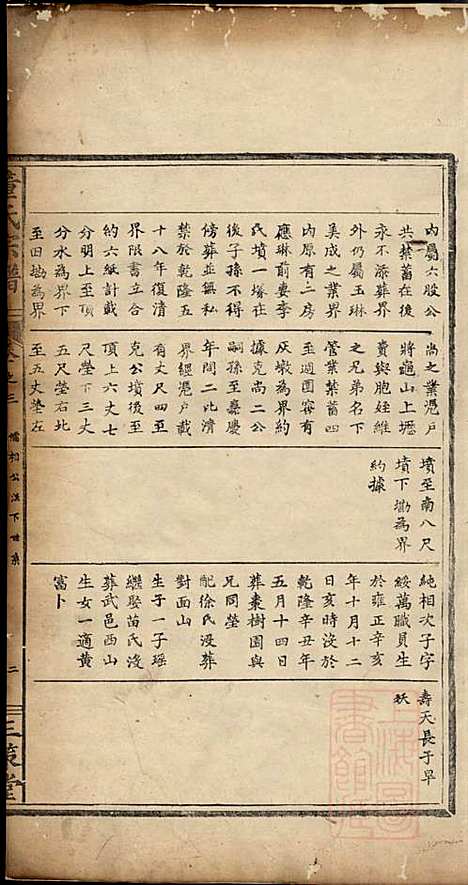 內屬六股公
共禁蓄在後
永不添葬界
外仍屬玉琳
美成之業界
內原有二房
應琳前妻李
氏墳一塚在
後子孫不得
傍葬並無私
禁於乾隆五
十八年復清
界限書立合
約六紙計載
分明上至頂
分水為界下
至田塝為界
尚之業憑戶
將龜山上壢
賣與胞姪維
之兄弟名下
管業禁蓄四
至週圍窨有
灰墩為界約
據克尚二公
嗣孫至嘉慶
年間二比清
界經憑戶載
有丈尺四至
克公墳後至
頂上六丈七
尺塋下三丈
五尺塋右北
至五丈塋左
墳至南八尺
墳下塝為界
約據
純相次子字
綏萬職員生
於雍正辛亥
年十月十二
日亥時沒於
乾隆辛丑年
五月十四日
葬棗樹園與
兄同塋
配徐氏沒葬
對面山
生子一子瑶
繼娶苗氏沒
葬武邑西山
生女一適黃
富卜
壽天長子早
殀
氏宗譜
卷之三
儒相公派下世系
二
三策堂
上海圖書館藏